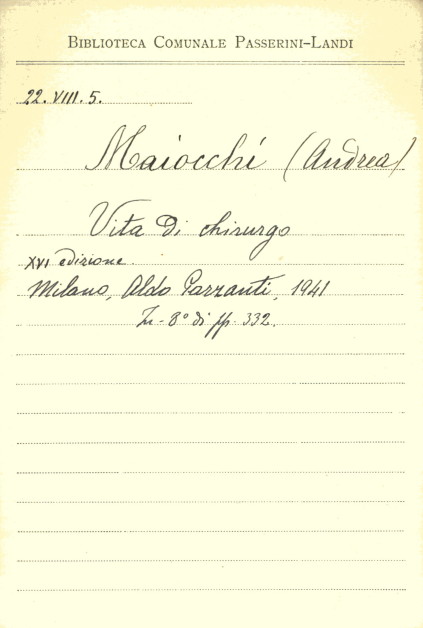 BIBLIOTECA COMUNALE PASSERINI-LANDI
22. VIII. 5.
Maiocchi (Andrea)
Vita di chirurgo
XVI edizione.
Milano, Aldo Garzanti, 1941
In-8° di pp. 332.